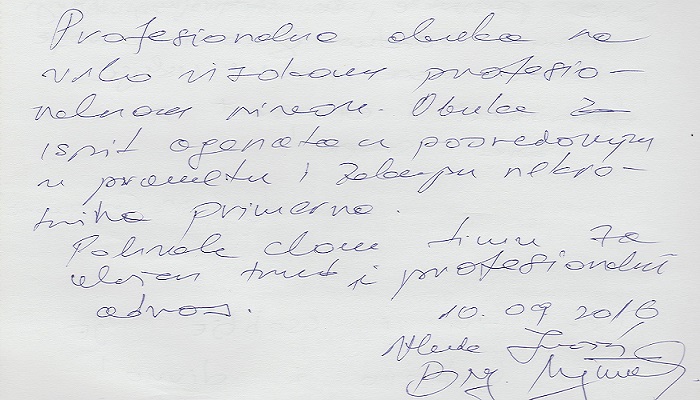 Profesionalna obuka na
vrlo visokom profesio-
nalnom nivou. Obuka za
ispit agenata u posredovanju
u prometu i zakupu nekret-
nina primerna.
Pohvale clanu tima za
ulozen trud i profesionalni
odnos.
10.09 2016